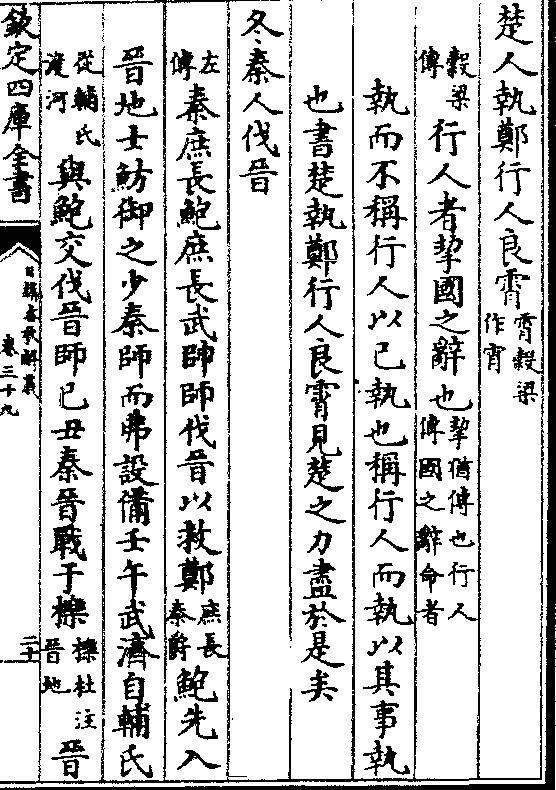 楚人執鄭行人良霄霄穀梁作宵
穀梁傳行人者挈國之辭也挈猶傳也行人傳國之辭命者
執而不稱行人以己執也稱行人而執以其事執
也書楚執鄭行人良霄見楚之力盡於是矣
冬秦人伐晉
左傳秦庶長鮑庶長武帥師伐晉以救鄭庶長秦爵鮑先入
晉地士魴御之少秦師而弗設備壬午武濟自輔氏
從輔氏渡河與鮑交伐晉師己丑秦晉戰于櫟櫟杜注晉地晉
欽定四庫全書
日講春秋解義
卷三十九
二十